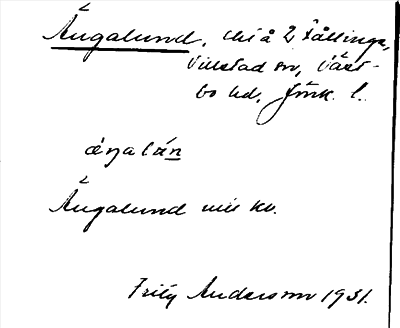 Ängalund, chi å 2 Fållinge,
Villstad sn, Väst-
bo hd, Jönk. l.
áŋalán
Ängalund mil kv.
Fritz Anderson 1931.